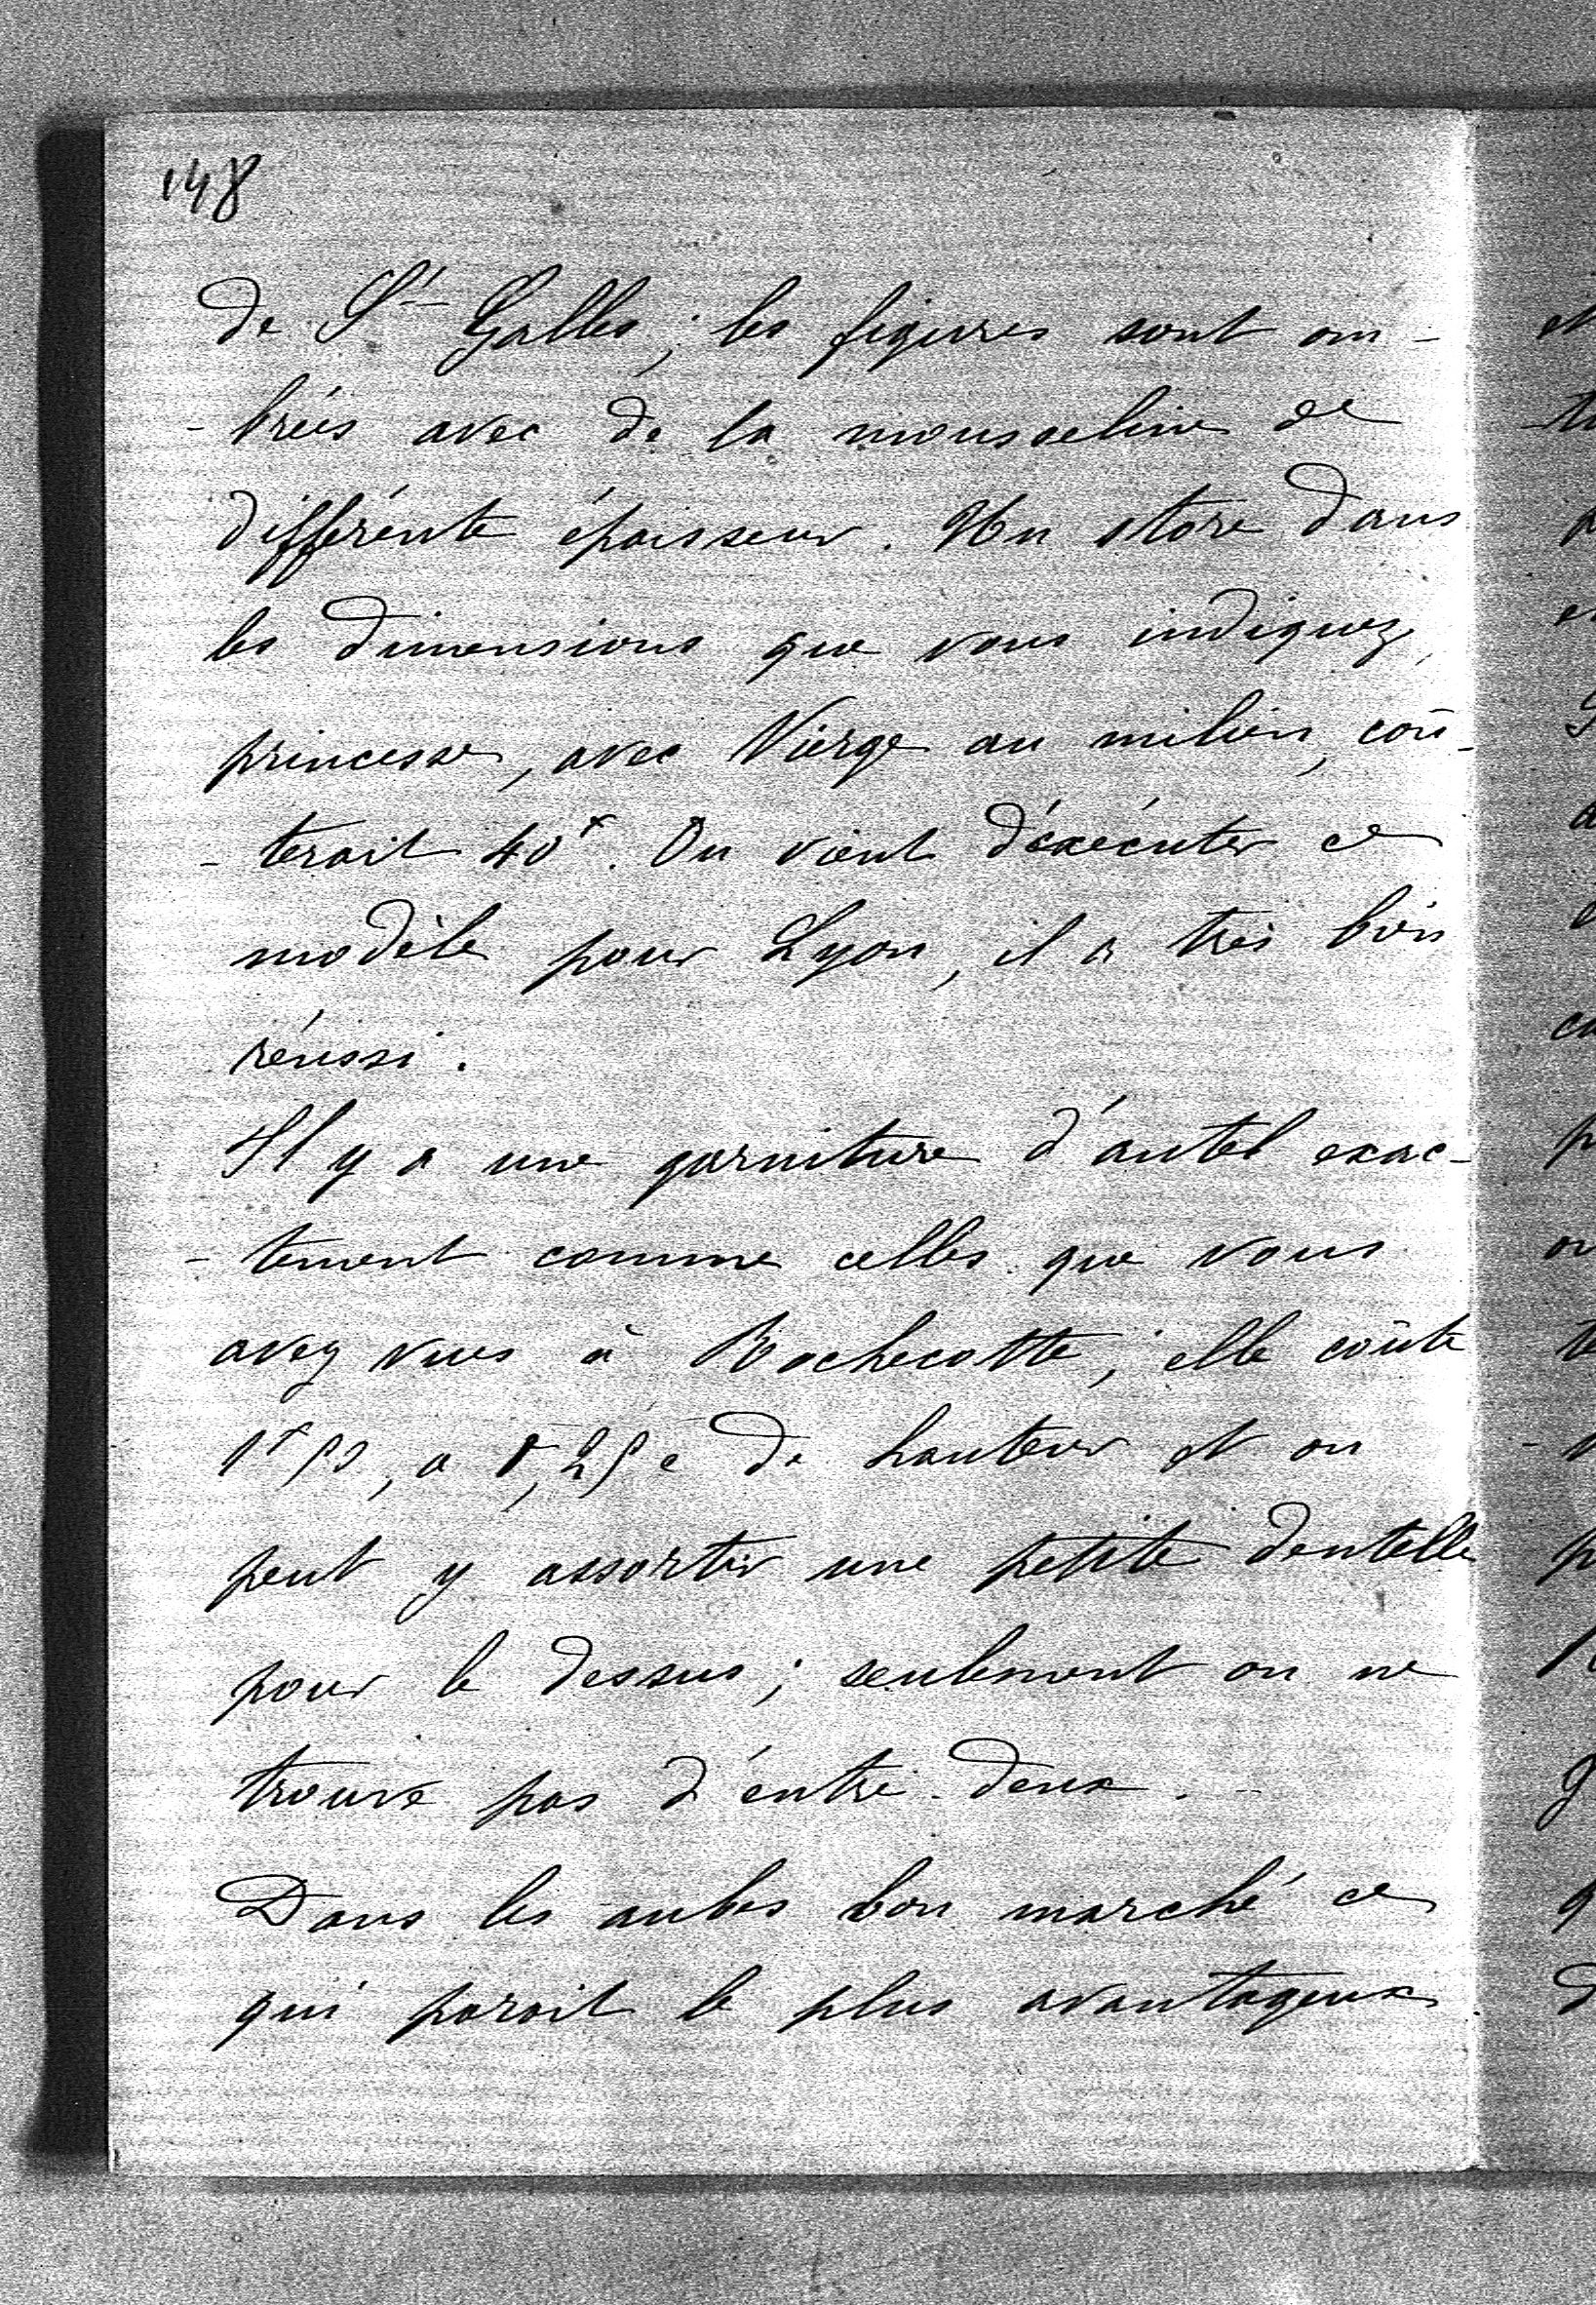 148
de St Galles ; les figures sont om-
-brées avec de la mousseline de
différente épaisseur. Un store dans
les dimensions que vous indiquez,
princesse, avec Vierge au milieu, coû-
-terait 40f. On vient d'éxécuter ce
modèle pour Lyon, il a très bien
réussi.
Il y a une garniture d'autel exac-
-tement comme celles que vous
avez vues à Rochecotte ; elle coûte
a 0,25 c de hauteur et on
peut y assortir une petite dentelle
pour le dessus ; seulement on ne
trouve pas d'entre-deux.
Dans les aubes bon marché ce
qui parait le plus avantageux